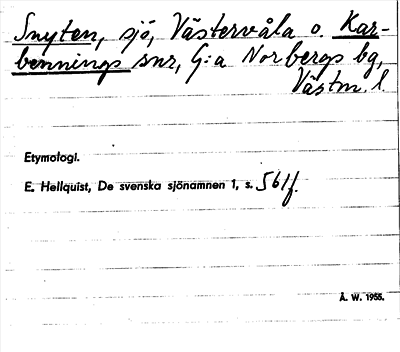 Snyten, sjö, Västervåla o. Kar-
bennings snr, G:a Norbergs bg,
Västm. l.
Etymologi.
E. Hellquist, De svenska sjönamnen 1, s. 561f.
Å. W. 1955.